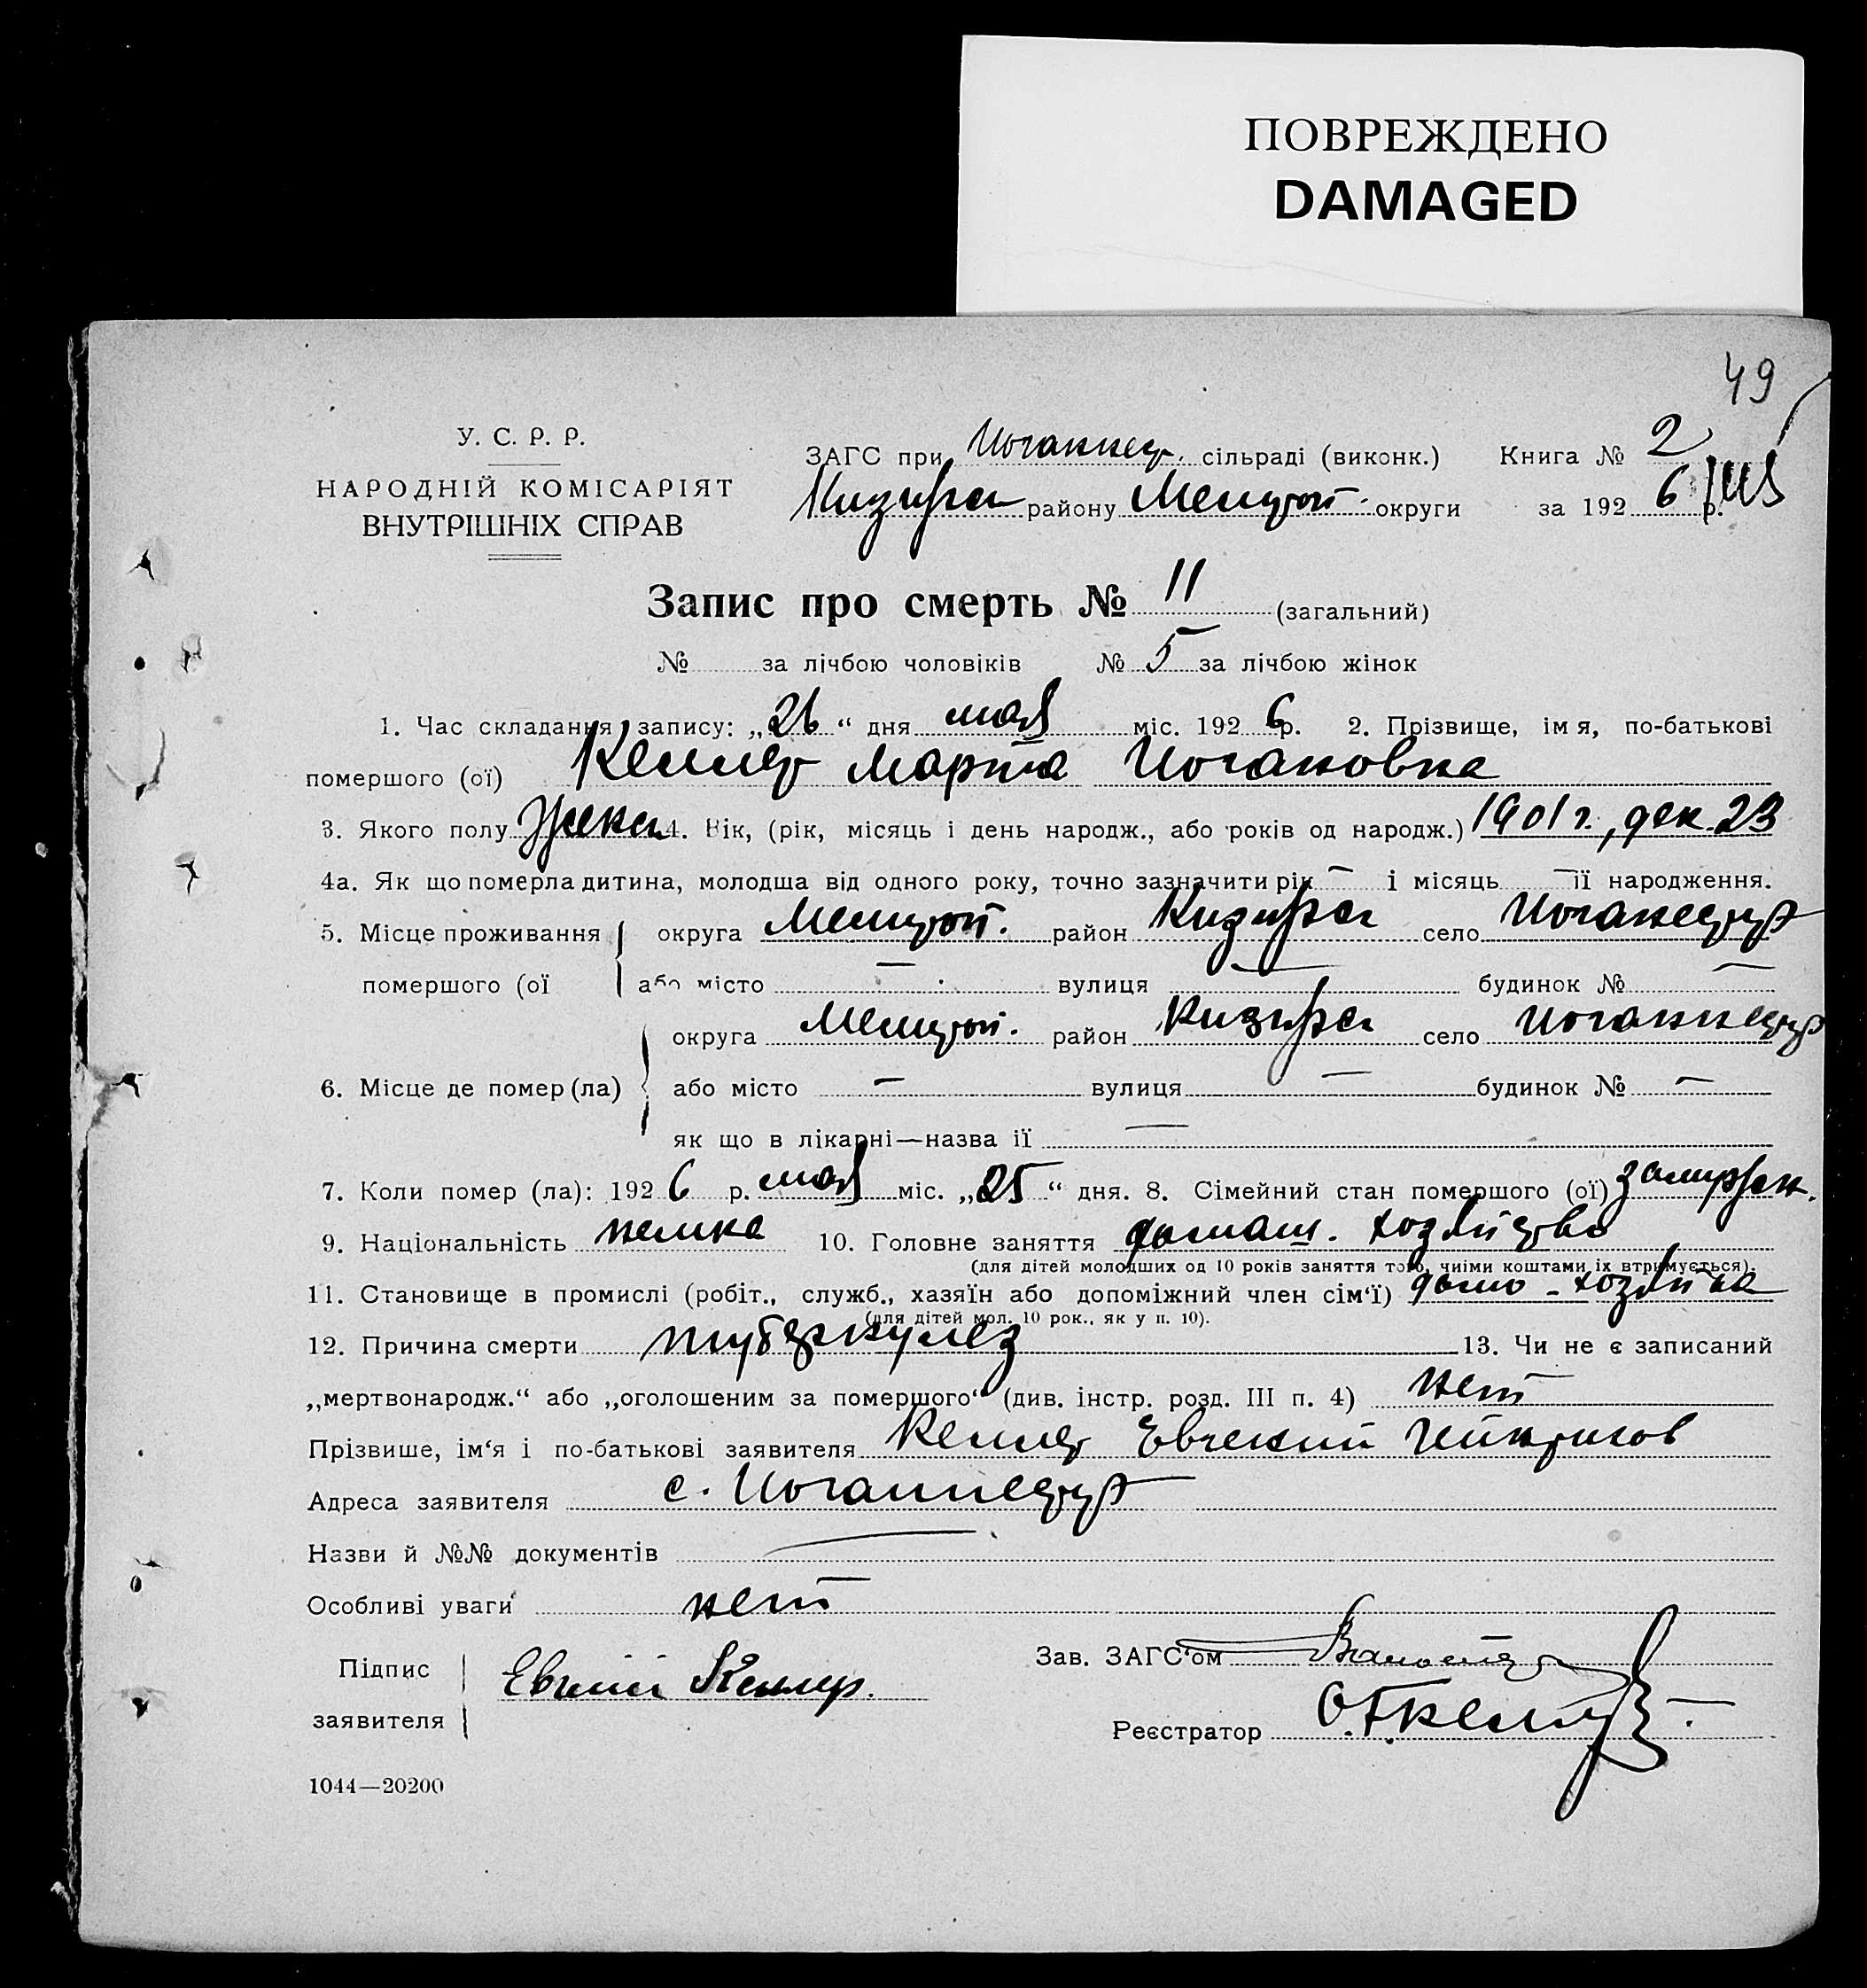 ПОВРЕЖДЕНО
DAMAGED
49
У. С. Р. Р.
НАРОДНІЙ КОМІСАРІЯТ
ВНУТРІШНІХ СПРАВ
ЗАГС при Иоганнеср. сільраді (виконк.) Книга № 2
району Мелитоп. округи за 192 6 р.
Запис про смерть № 11 (загальний)
№ за лічбою чоловіків № 5 за лічбою жінок
1. Час складання запису: „26“ дня мая міс. 192 6 р. 2. Прізвище, імя, по-батькові
помершого (ої) Келлер Марта Иогановна
3. Якого полу Женск 4. Вік, (рік, місяць і день народж., або років од народж.) 1901 г., дек. 23
4а. Як що померла дитина, молодша від одного року, точно зазначити рік — і місяць — її народження.
5. Місце проживання округа Мелитоп. район село Иоганесру
помершого (ої або місто — вулиця — будинок № —
округа Мелитоп. район село Иоганнесру
6. Місце де помер (ла) або місто — вулиця — будинок № —
як що в лікарні—назва її —
7. Коли помер (ла): 192 6 р. мая міс. „25“ дня. 8. Сімейний стан помершого (ої) замужн.
9. Національність немка 10. Головне заняття домаш. хозяйство
(для дітей молодших од 10 років заняття того, чиїми коштами їх втримується).
11. Становище в промислі (робіт., служб., хазяїн або допоміжний член сім‘ї) домо-хозяйка
(для дітей мол. 10 рок., як у п. 10).
12. Причина смерти туберкулез 13. Чи не є записаний
„мертвонародж.“ або „оголошеним за помершого“ (див. інстр. розд. III п. 4) нет
Прізвише, ім‘я і по-батькові заявителя Келлер Евгений Гейнрихов
Адреса заявителя с. Иоганнесру
Назви й №№ документів —
Особливі уваги нет
Підпис Евгений Келлер. Зав. ЗАГС‘ом
заявителя
Реєстратор
1044—20200